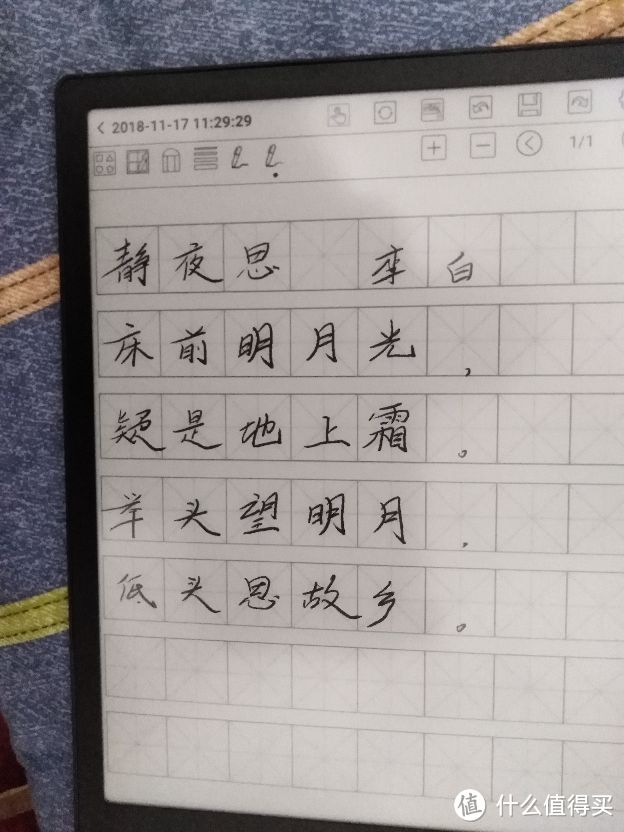 2018-11-17 11:29:29
1/1
静夜思 李白
床前明月光，
疑是地上霜。
举头望明月，
低头思故乡。
值 什么值得买